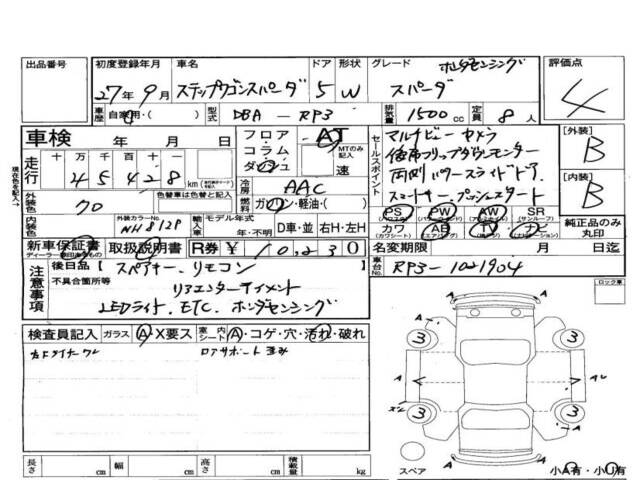 出品番号 初度登録年月 車名 ドア 形状 グレード ホンダセンシング 評価点
27年9月 ステップワゴンスパーダ 5 W スパーダ 4
車歴 自家用・( ) 型式 DBA - RP3 排気量 1500cc 定員 8人
車検 年 月 日 フロア AT セールスポイント マルチビューカメラ [外装] B
走行 十万千百十一 45428 km コラム ダッシュ MTのみ記入 速 後席フリップダウンモニター
両側パワースライドドア
冷房 AAC スマートキー プッシュスタート [内装] B
外装色 クロ 色替車は色替と記入 燃料 ガソリン・軽油・( )
PS PW AW SR
内装色 外装カラーNo. NH812P 輸入車 モデル年式 年・不明 D車・並 右H・左H カワ AB TV ナビ 純正品のみ丸印
新車保証書 取扱説明書 R券 ¥10,230 名変期限 月 日迄
注意事項 後日品【スペアキー、リモコン 車台No. RP3-1021904 ロック車
不具合箇所等 リアエンターテイメント
LEDライト、ETC、ホンダセンシング
検査員記入 ガラス A・X要ス 室内シート A・コゲ・穴・汚れ・破れ
ロアサポート歪み
A A
3 3
A A
3 3
A
スペア 小A有・小U有
長さ cm 幅 cm 高さ cm 積載量 kg